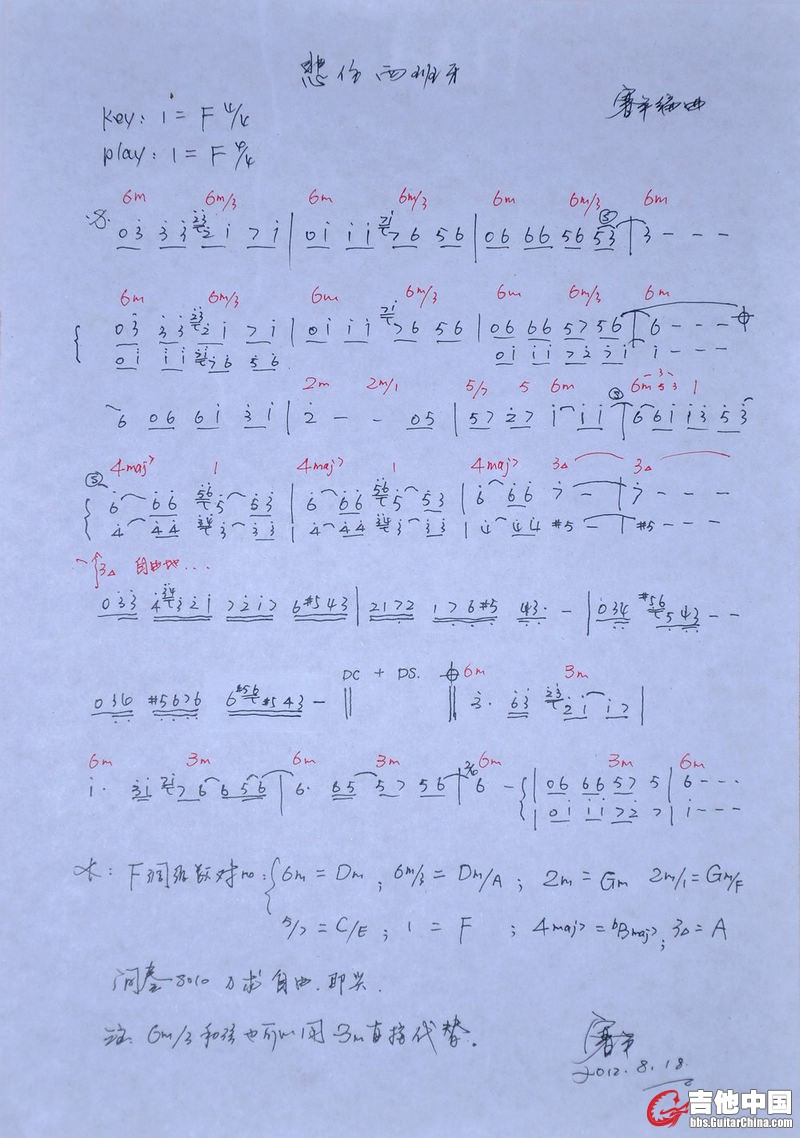 悲伤西班牙
赛平编曲
key: 1 = F 4/4
play: 1 = F 4/4
6m 6m/3 6m 6m/3 6m 6m/3 6m
0 3 3 3 2 1 7 1 | 0 1 1 1 7 6 5 6 | 0 6 6 6 5 6 5 3 | 3 - - -
6m 6m/3 6m 6m/3 6m 6m/3 6m
0 3 3 3 2 1 7 1 | 0 1 1 1 7 6 5 6 | 0 6 6 6 5 7 5 6 | 6 - - -
0 1 1 1 7 6 5 6 0 1 1 1 7 2 7 1 | 1 - - -
2m 2m/1 5/7 5 6m 6m 5 3 1
6 0 6 6 1 3 1 | 2 - - 0 5 | 5 7 2 7 1 1 1 | 6 6 1 1 3 5 3
4maj7 1 4maj7 1 4maj7 3△ 3△
6 6 6 5 5 5 3 | 6 6 6 5 5 5 3 | 6 6 6 7 - | 7 - - -
4 4 4 3 3 3 | 4 4 4 3 3 3 | 4 4 4 #5 - | #5 - - -
3△ 自由地...
0 3 3 4 3 2 1 7 2 1 7 6 #5 4 3 | 2 1 7 2 1 7 6 #5 4 3 · - | 0 3 4 #5 6 5 4 3 - -
0 3 6 #5 6 7 6 6 #5 6 #5 4 3 - DC + DS. 6m 3m
3 · 6 3 2 3 2 1 1 7 |
6m 3m 6m 3m 6m 3m 6m
1 · 3 1 2 1 7 6 6 5 6 | 6 · 6 5 5 7 5 6 | 6 - | 0 6 6 6 5 7 5 | 6 - - -
0 1 1 1 7 2 7 | 1 - - -
F调级数对no: 6m = Dm ; 6m/3 = Dm/A ; 2m = Gm 2m/1 = Gm/F
5/7 = C/E ; 1 = F ; 4maj7 = bBmaj7 ; 3△ = A
间奏solo 力求自由.即兴.
注: 6m/3和弦也可以用3m直接代替。
赛平
2012.8.18
吉他中国
bbs.GuitarChina.com